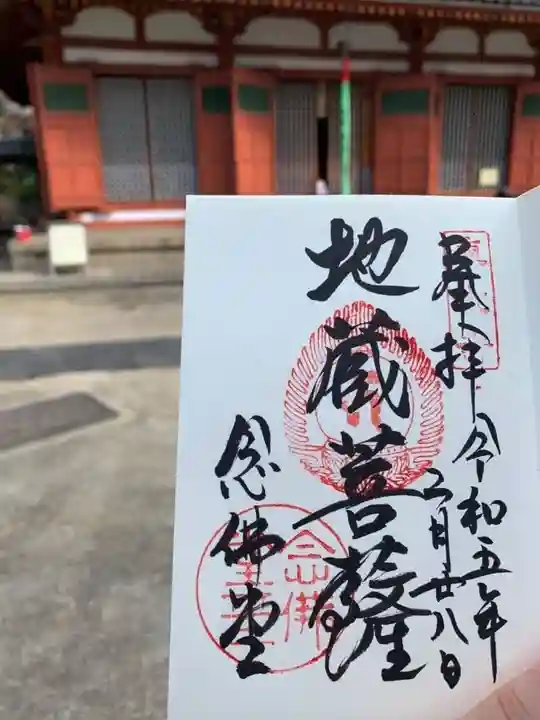 奉拝
令和五年
三月廿八日
地蔵菩薩
念佛堂
念佛